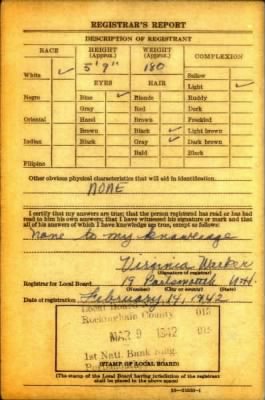 REGISTRAR'S REPORT
DESCRIPTION OF REGISTRANT
RACE HEIGHT (Approx.) WEIGHT (Approx.) COMPLEXION
5' 9" 180
White ✓ Sallow
EYES HAIR Light ✓
Negro Blue ✓ Blonde Ruddy
Gray Red Dark
Oriental Hazel Brown Freckled
Brown Black ✓ Light brown
Indian Black Gray ✓ Dark brown
Bald Black
Filipino
Other obvious physical characteristics that will aid in identification.
NONE
I certify that my answers are true; that the person registered has read or has had
read to him his own answers; that I have witnessed his signature or mark and that
all of his answers of which I have knowledge are true, except as follows:
None to my knowledge
Virginia
(Signature of registrar)
Registrar for Local Board 19 Portsmouth N.H.
(Number) (City or county) (State)
Date of registration February 14, 1942
Local Board
Rockingham County 015
MAR 9 1942
1st Natl. Bank Bldg.
(STAMP OF LOCAL BOARD)
(The stamp of the Local Board having jurisdiction of the registrant
shall be placed in the above space)